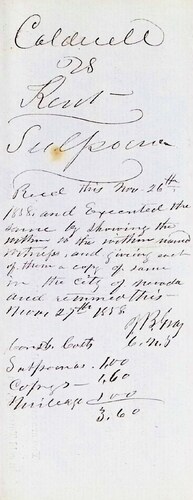 Caldwell
vs
Kent
Subpoena
Recd this Nov. 26th
1858, and Executed the
same by showing the
within to the within named
witness, and giving each
of them a copy of same
in the city of Nevada
and returned this
Nov. 27th 1858
Const. Costs
Subpoenas 1,00
Copys 1,60
Mileage 1 00
3,60